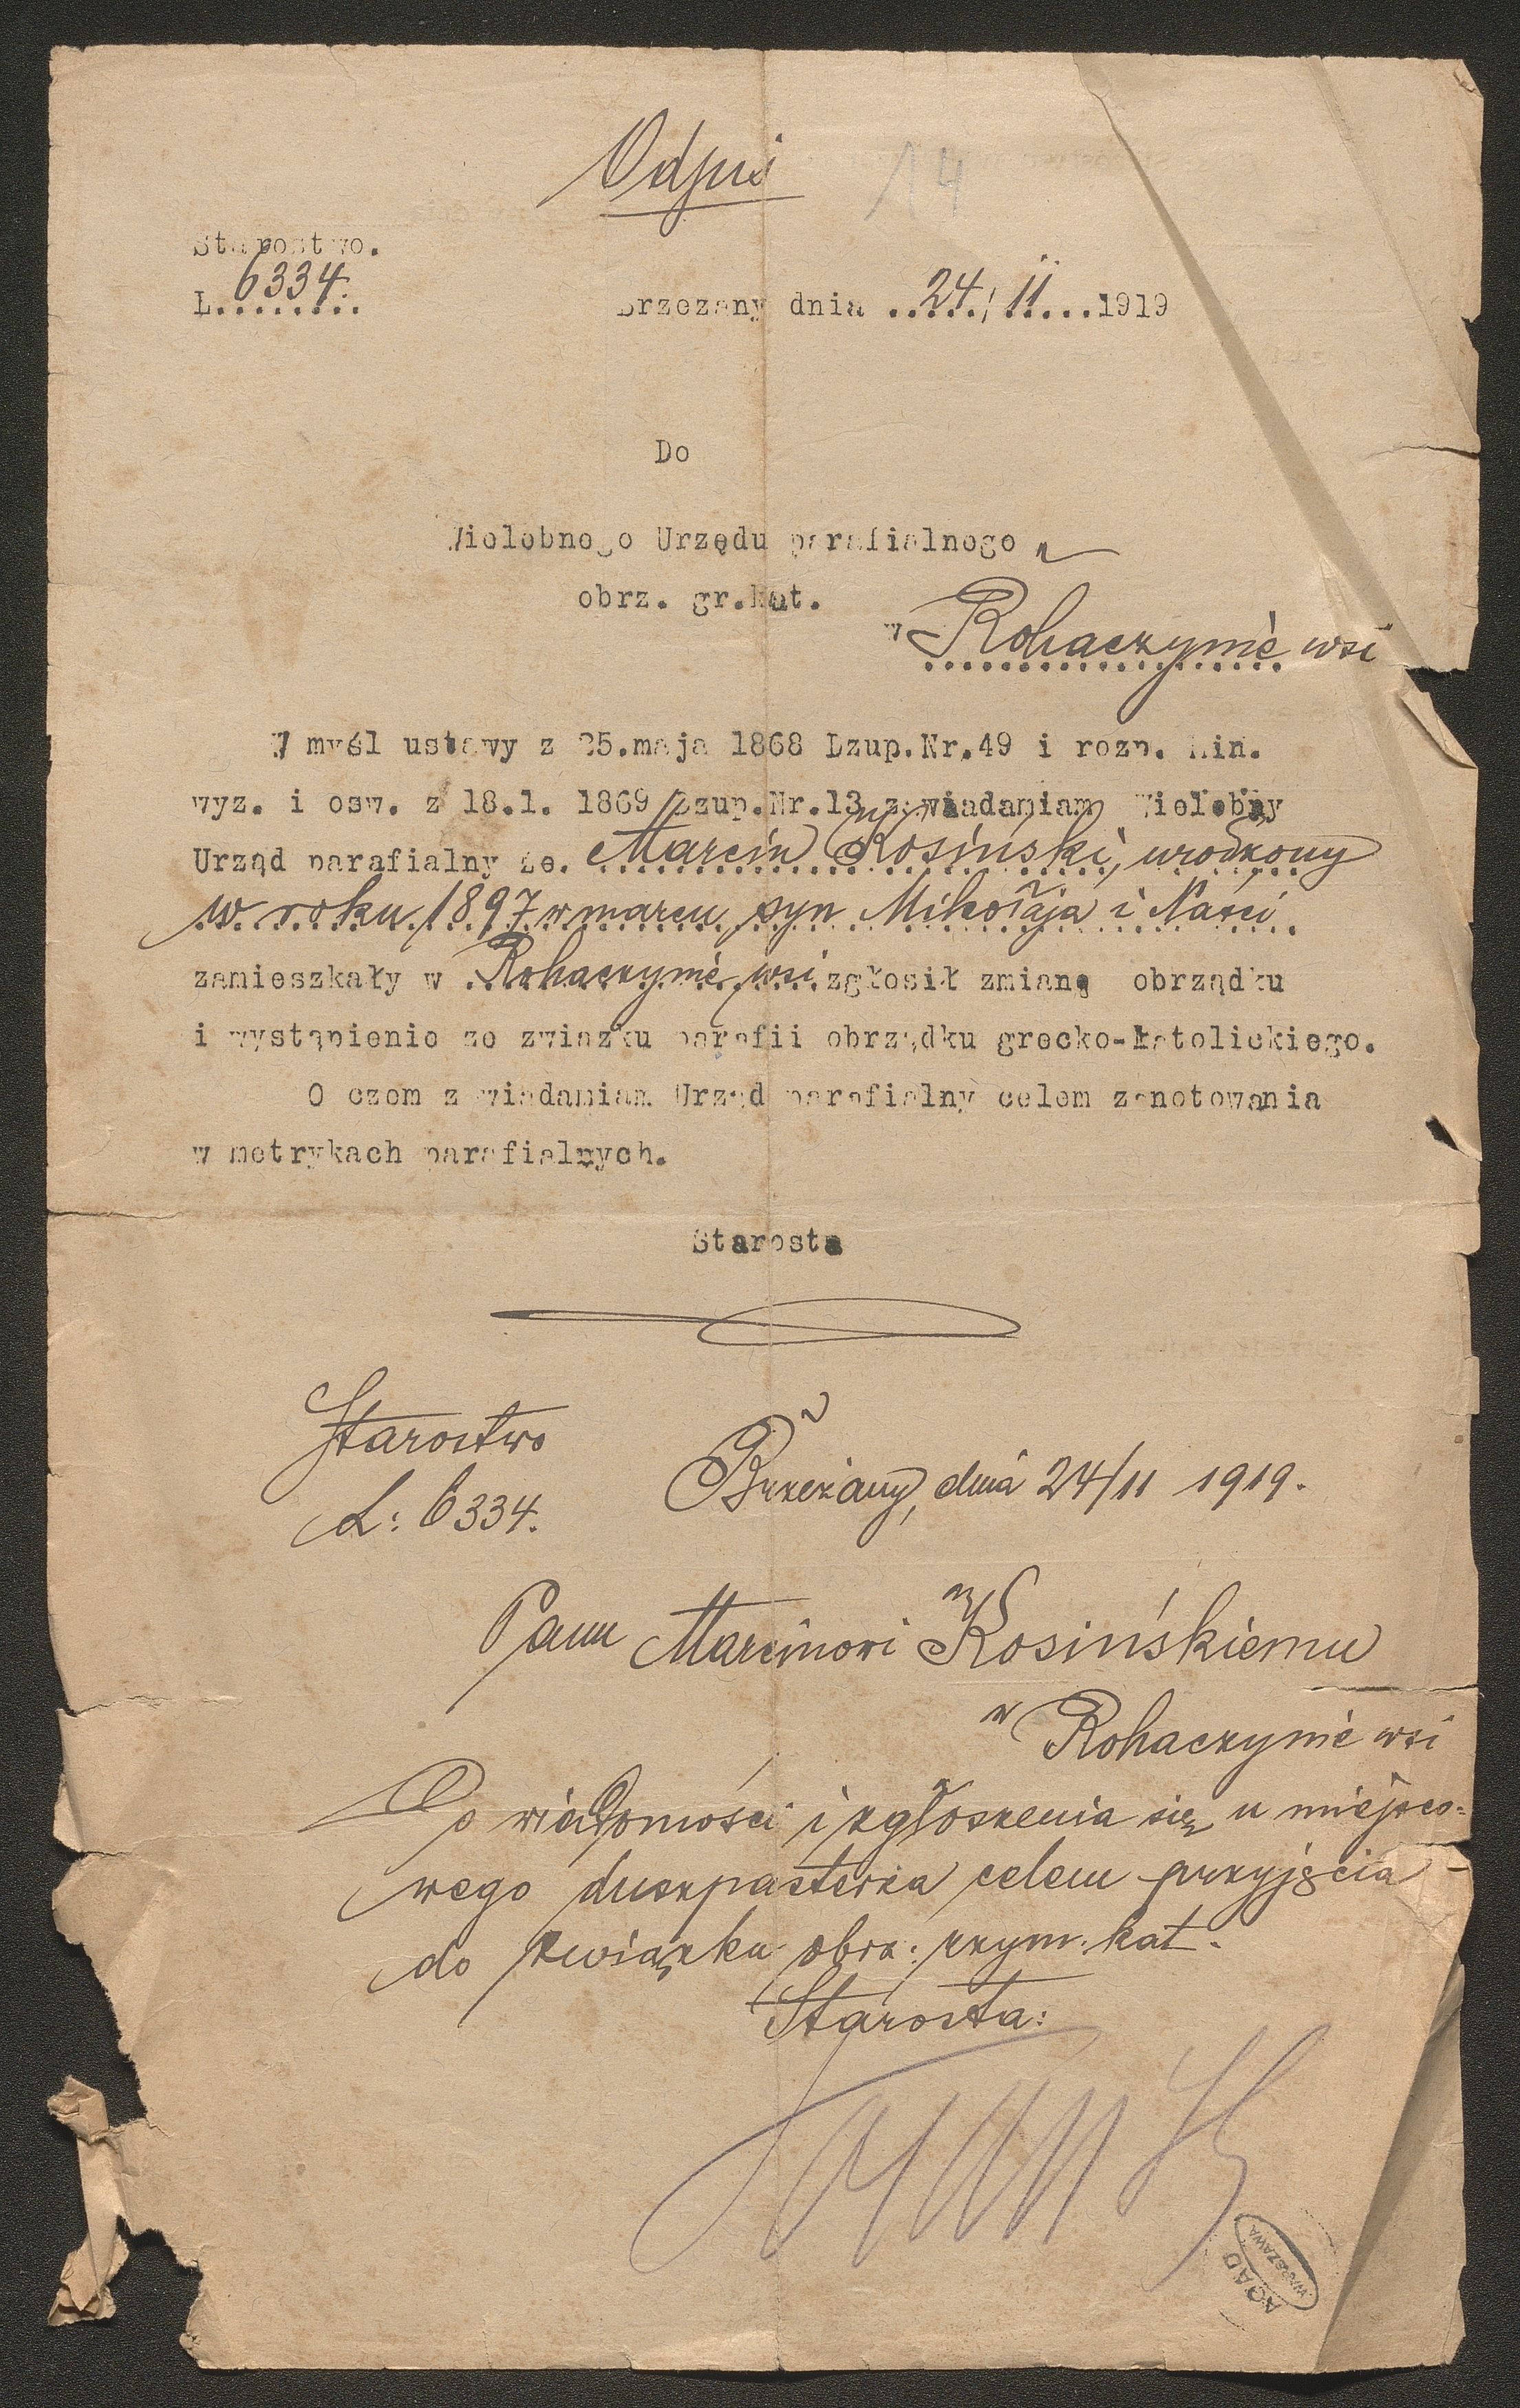 Odpis
14
Starostwo.
L. 6334.
Brzezany dnia 24/11 1919
Do
Wielebnego Urzędu parafialnego
obrz. gr.kat.
w Rohaczynie wsi
W myśl ustawy z 25.maja 1868 Dzup.Nr.49 i rozp. Min.
wyz. i osw. z 18.1. 1869 Dzup.Nr.13 zawiadamiam Wielebny
Urząd parafialny że. Marcin Kosiński, urodzony
w roku 1897 w marcu, syn Mikołaja i Naści
zamieszkały w Rohaczynie wsi zgłosił zmianę obrządku
i wystąpienie ze związku parafii obrządku grecko-katolickiego.
O czem zawiadamiam Urząd parafialny celem zanotowania
w metrykach parafialnych.
Starosta
Starostwo
L: 6334.
Brzeżany, dnia 24/11 1919.
Panu Marcinowi Kosińskiemu
w Rohaczynie wsi
Do wiadomości i zgłoszenia się u miejsco=
wego duszpasterza celem przyjęcia
do związku obrz: rzym. kat.
Starosta:
AGAD
WARSZAWA